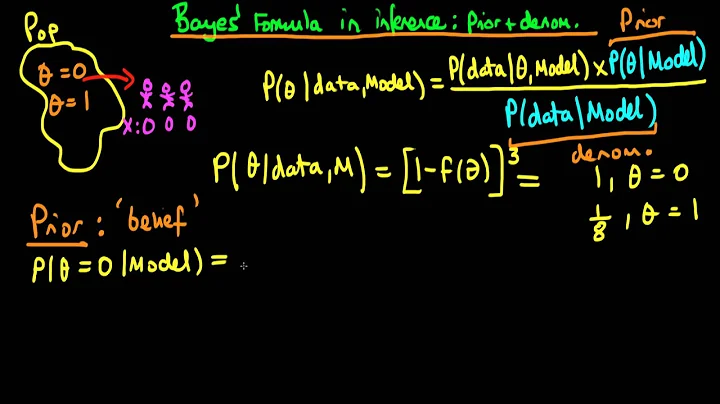 Bayes' Formula in inference: Prior + denom.
Prior
Pop
θ = 0
θ = 1
X: 0 0 0
P(θ | data, Model) = P(data | θ, Model) × P(θ | Model)
P(data | Model)
denom.
P(θ | data, M) = [1 - f(θ)]³ = 1, θ = 0
1/8, θ = 1
Prior: 'belief'
P(θ = 0 | Model) =